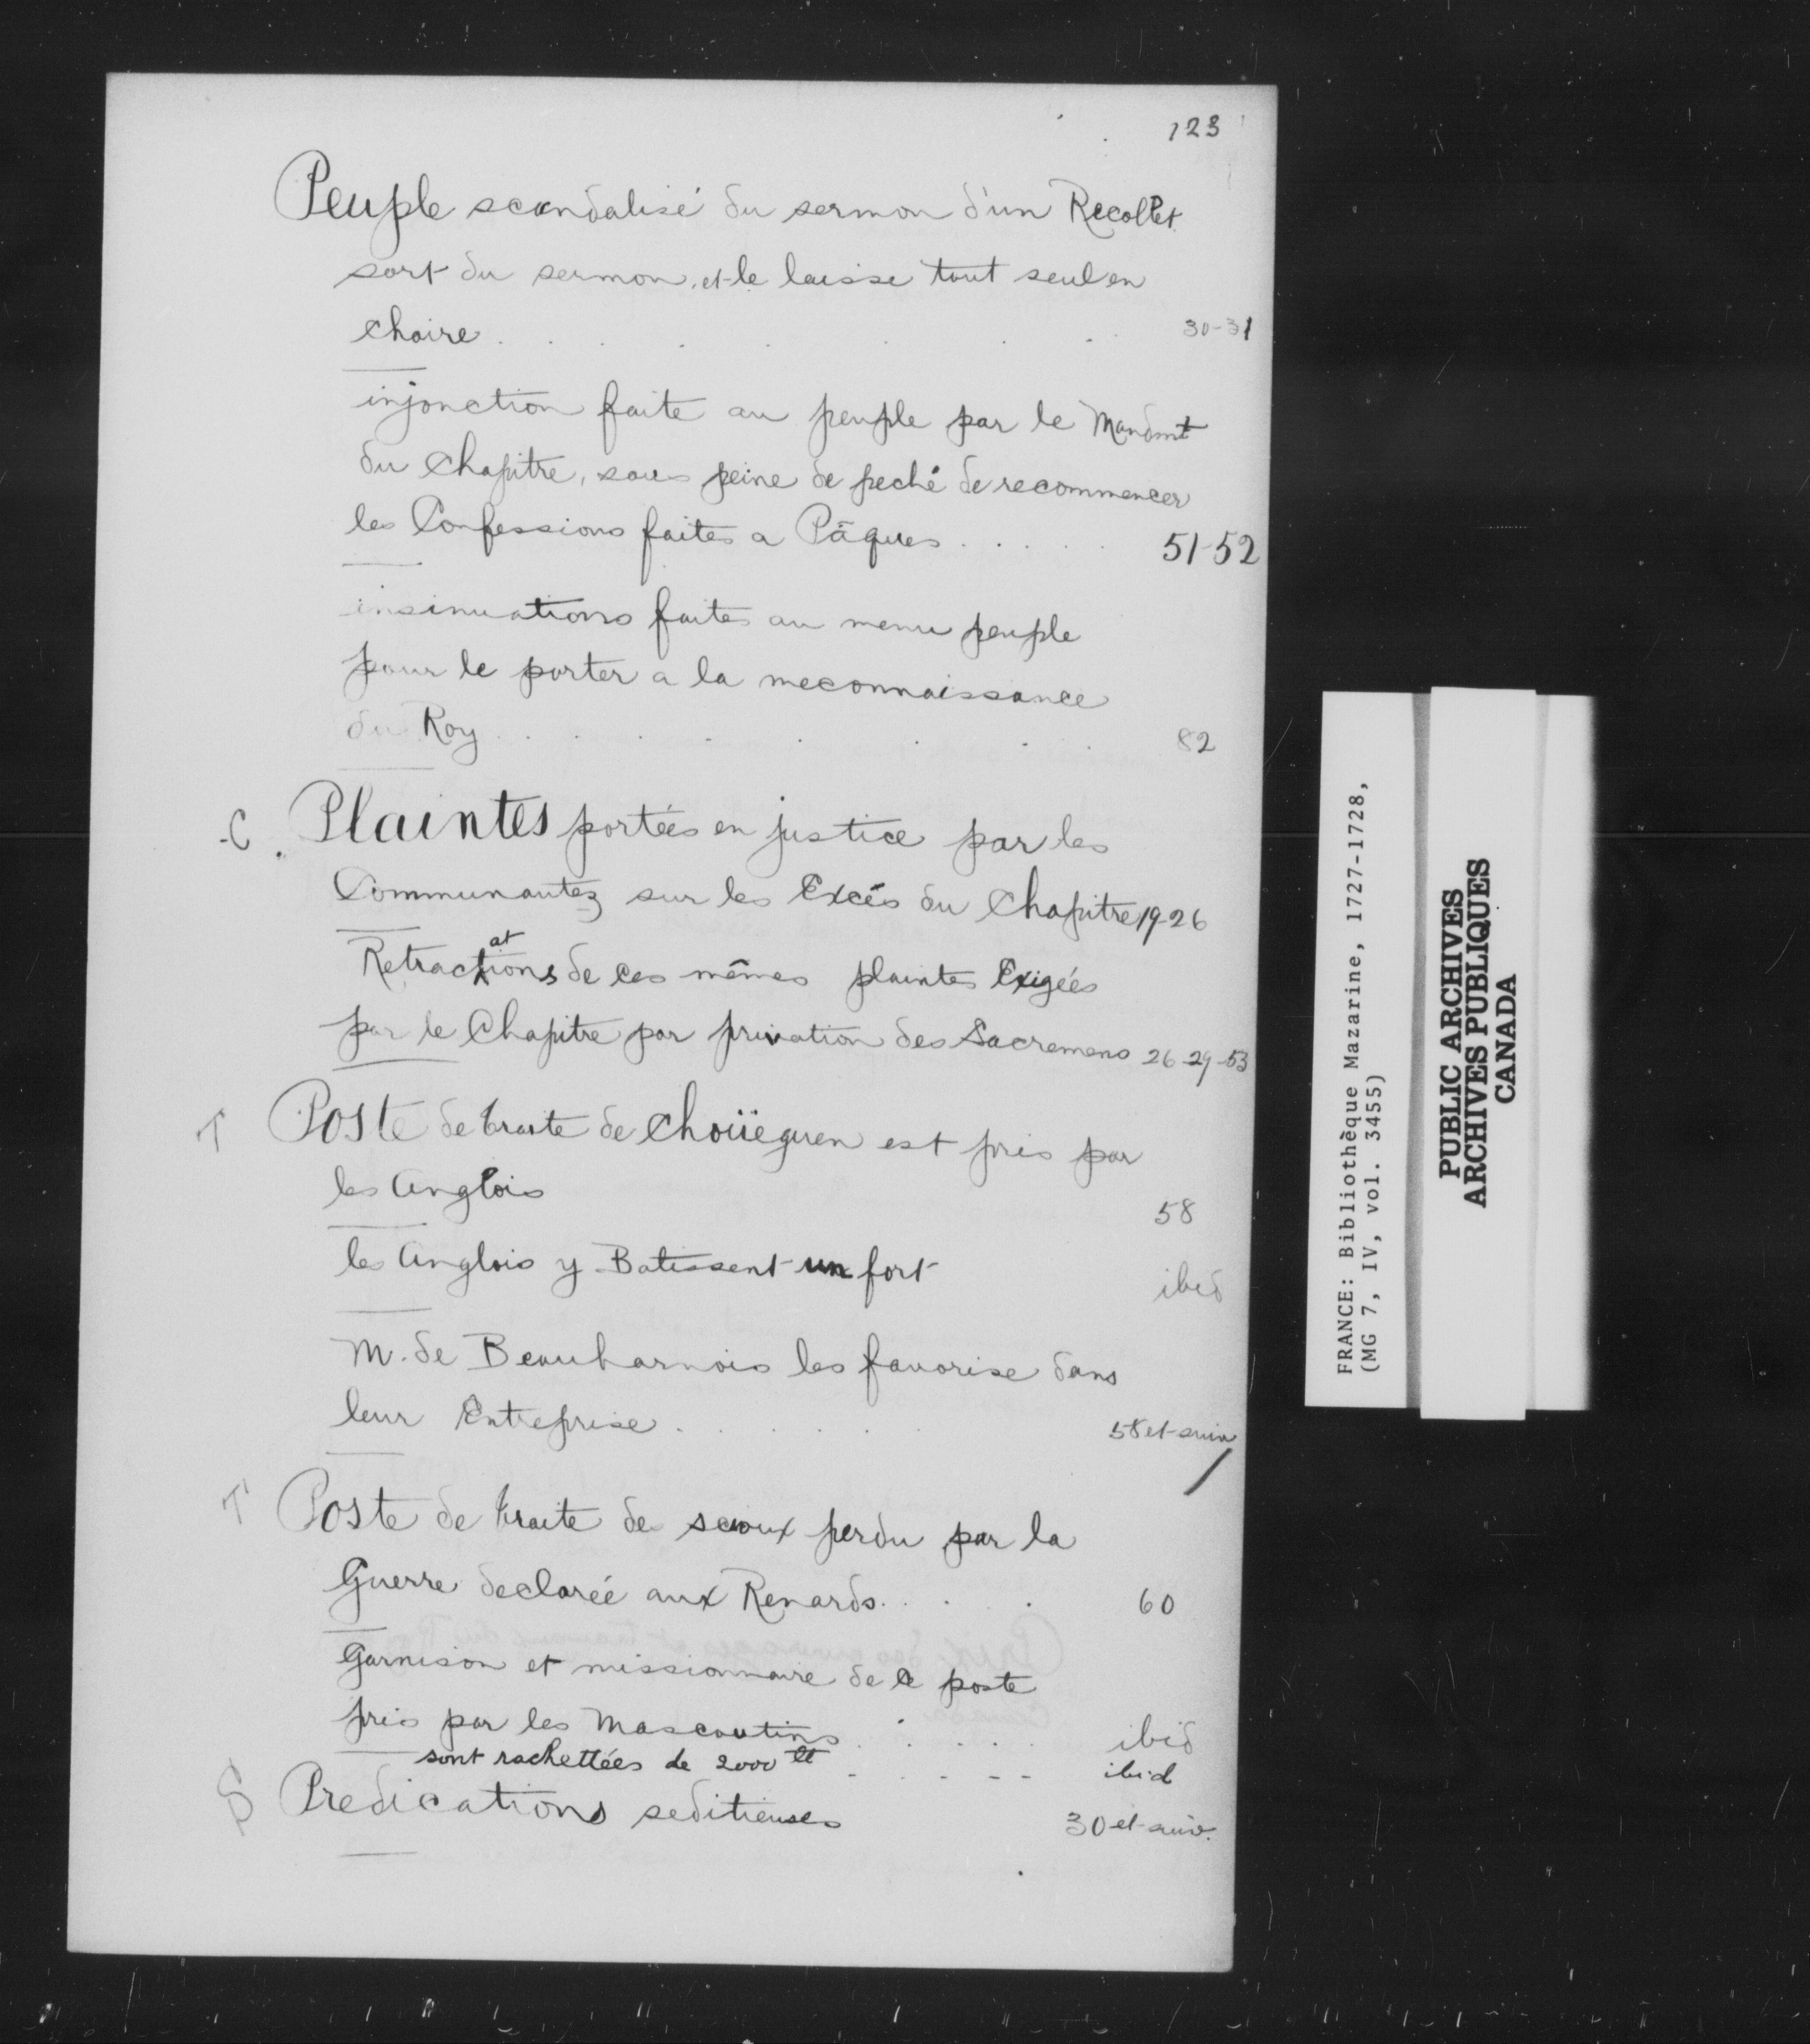 123
Peuple scandalisé du sermon d'un Recollet
sort du sermon, et le laisse tout seul en
chaire . . . . . . . 30-31
injonction faite au peuple par le Mandmt
du Chapitre, sous peine de peché de recommencer
les Confessions faites a Pâques . . . . . 51-52
insinuations faites au menu peuple
pour le porter a la meconnaissance
du Roy . . . . . . . 82
C. Plaintes portées en justice par les
Communautez sur les Excés du Chapitre 19-26
Retractations de ces mêmes plaintes Exigées
par le Chapitre par privation des Sacremens 26-29-53
T Poste de traite de Choüeguen est pris par
les Anglois 58
les Anglois y Batissent un fort ibid
M. de Beauharnois les favorise dans
leur Entreprise . . . . . 58 et suiv
T Poste de traite des scioux perdu par la
Guerre declarée aux Renards . . . . 60
Garnison et missionnaire de ce poste
pris par les Mascoutins . . . . . ibid
sont rachettées de 2000 lt - - - - - ibid
S Predications seditieuses 30 et suiv.
FRANCE: Bibliothèque Mazarine, 1727-1728,
(MG 7, IV, vol. 3455)
PUBLIC ARCHIVES
ARCHIVES PUBLIQUES
CANADA